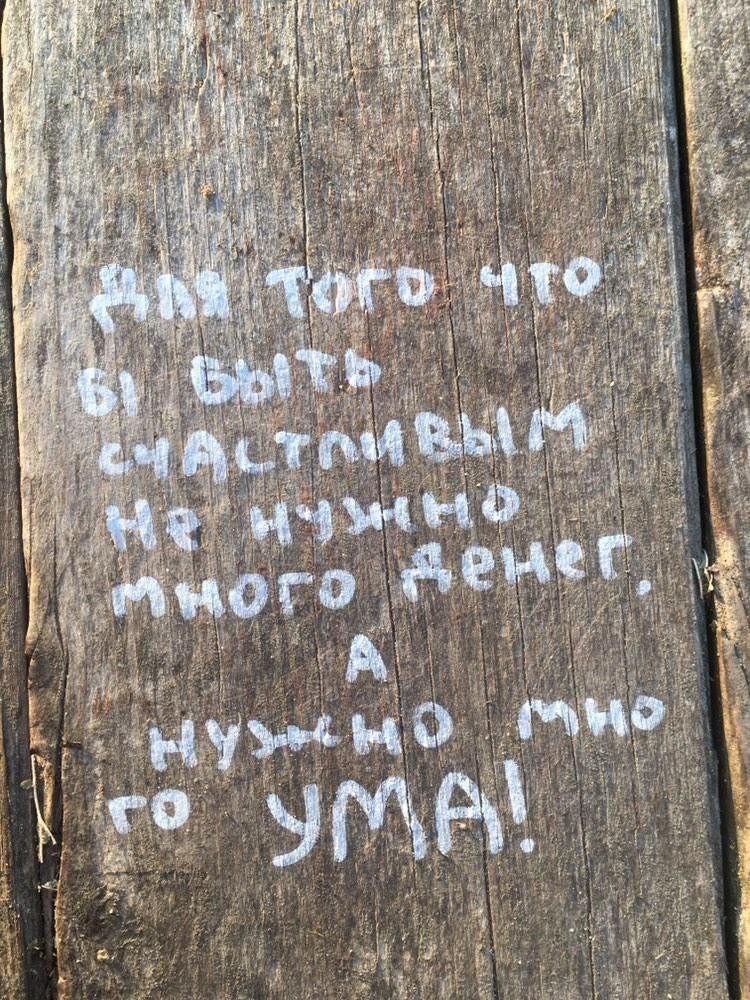 Для того что
бы быть
счастливым
не нужно
много денег.
А
нужно мно
го УМА!